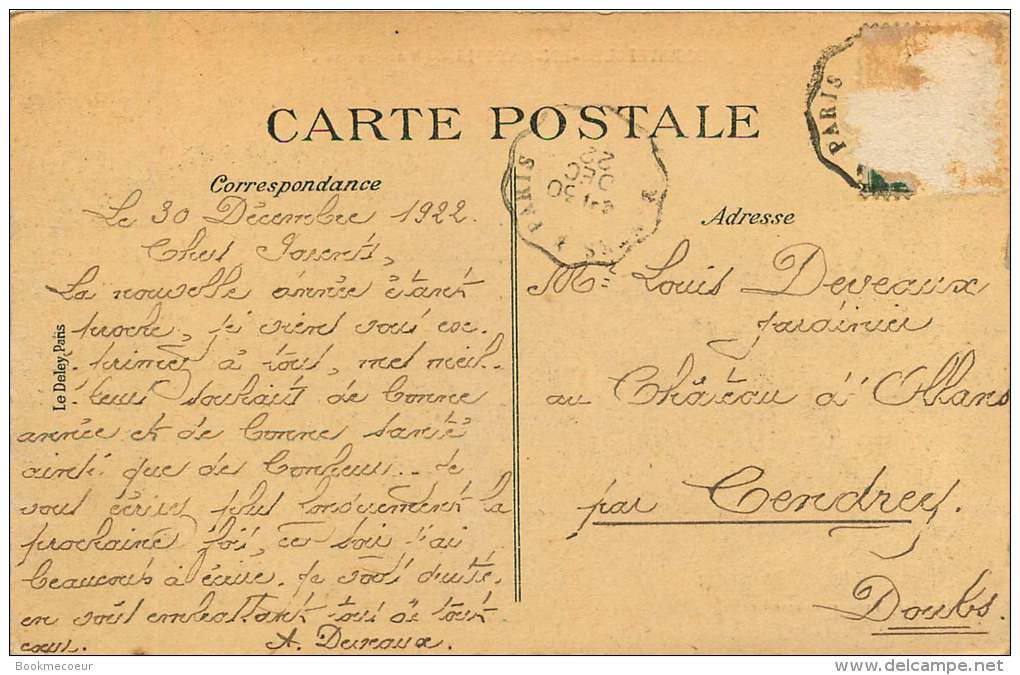 CARTE POSTALE
Correspondance
Le 30 Décembre 1922.
Chers Parents,
La nouvelle année étant
proche, je viens vous ex-
primer à tous, mes meil-
leurs souhaits de bonne
année et de bonne santé
ainsi que de bonheur. Je
vous écrirez plus longuement la
prochaine fois, ce soir j'ai
beaucoup à écrire. Je vous quitte,
en vous embrassant tous de tout
cœur. A. Deveaux.
Le Deley, Paris
Adresse
Mr Louis Deveaux
jardinier
au Château d'Ollans
par Cendrey.
Doubs.
PARIS
30
DEC
22
PARIS
Bookmecoeur
delcampe.net